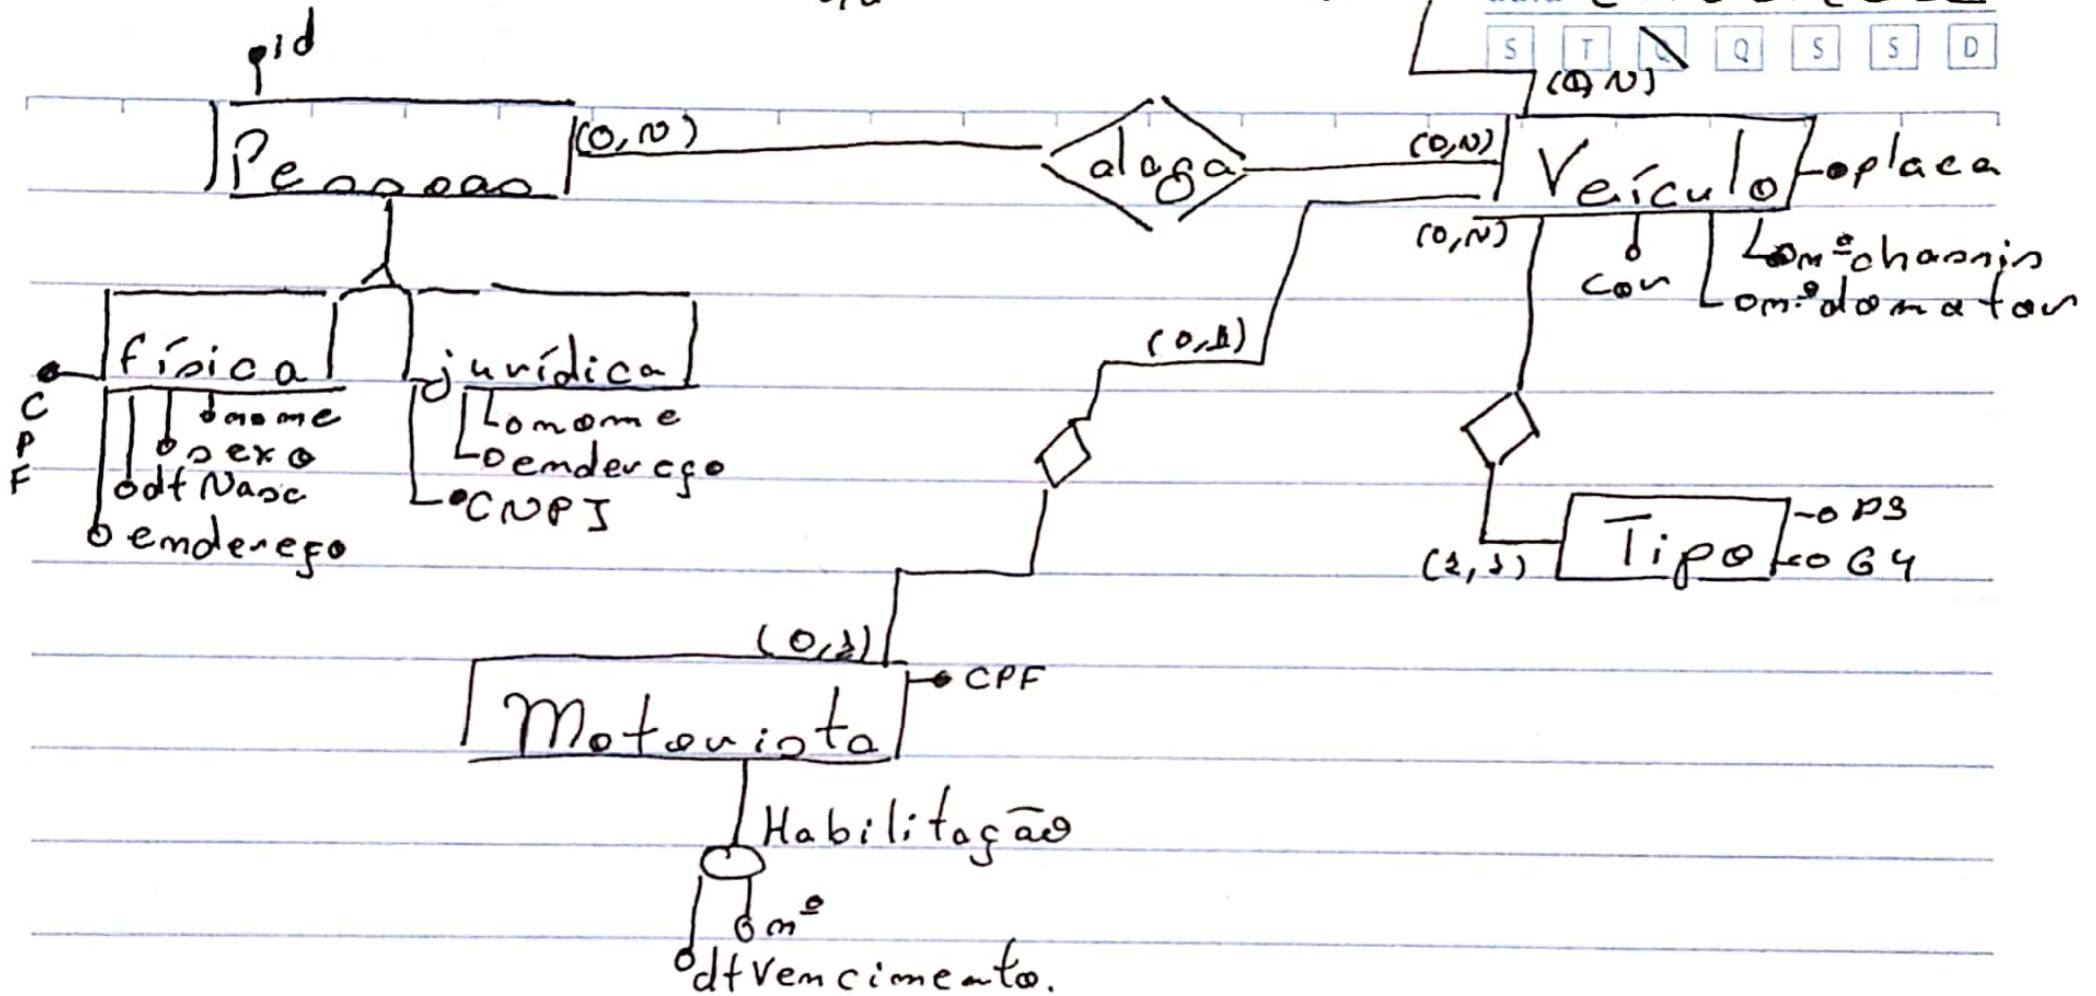 id
S T Q Q S S D
(0,N)
Pessoas (0,N) aloga (0,N) Veículo placa
(0,N)
cor
nº chassis
nº do motor
física jurídica
(0,1)
CPF
nome
sexo
dtNasc
endereço
nome
endereço
CNPJ
Tipo P3
G4
(1,1)
(0,1)
Motorista CPF
Habilitação
nº
dtVencimento.